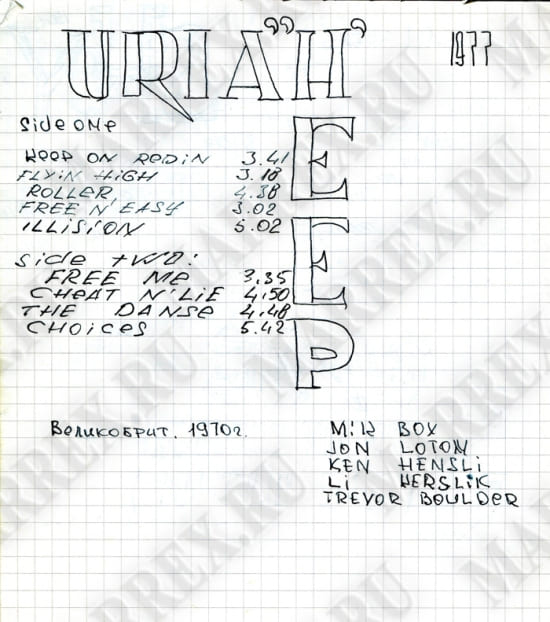 URIA"H"
1977
EEP
Side one
KEEP ON REDiN 3.41
FLYiN HiGH 3.18
ROLLER 4.38
FREE N'EASY 3.02
iLLiSiON 5.02
Side two:
FREE Me 3,35
CHEAT N'LiE 4,50
THE DANSe 4,48
CHOiCeS 5.42
Великобрит. 1970г.
MiK BOX
JON LOTON
KEN HENSLi
Li KERSLiK
TREVOR BOULDER
MARREX.RU